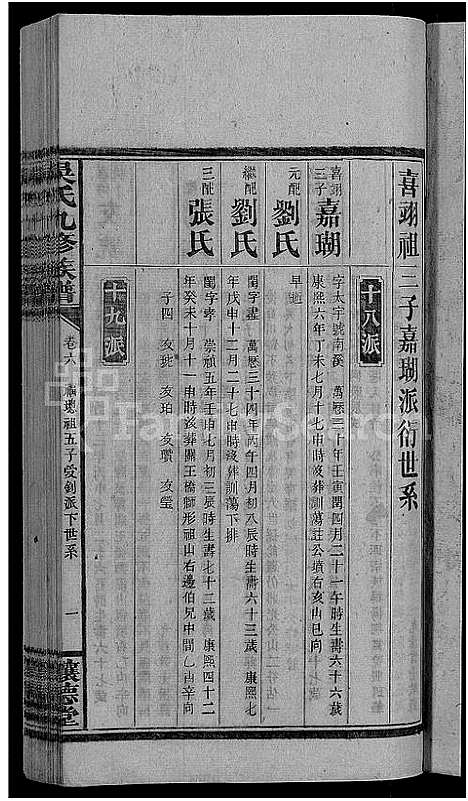 喜翊祖三子嘉瑚派衍世系
十八派
喜翊三子嘉瑚
字太宇號南溪 萬歷三十年壬寅閏四月二十一午時生壽六十六歲
康熙六年丁未七月十七申時歿葬訓蕩莊公墳右亥山巳向
元配劉氏
早逝
繼配劉氏
閨字盡 萬歷三十四年丙午四月初八辰時生壽六十三歲 康熙七
年戊申十二月二十七申時歿葬訓蕩下排
三配張氏
閨字孝 崇禎五年壬申七月初三辰時生壽七十二歲 康熙四十二
年癸未十月十一申時歿葬關王橋獅形祖山右邊伯兄中間乙山辛向
子四 友珄 友珀 友瓚 友瑩
十九派
吳氏九修族譜
卷六
祖五子愛釗派下世系
一
讓德堂
FamilySearch